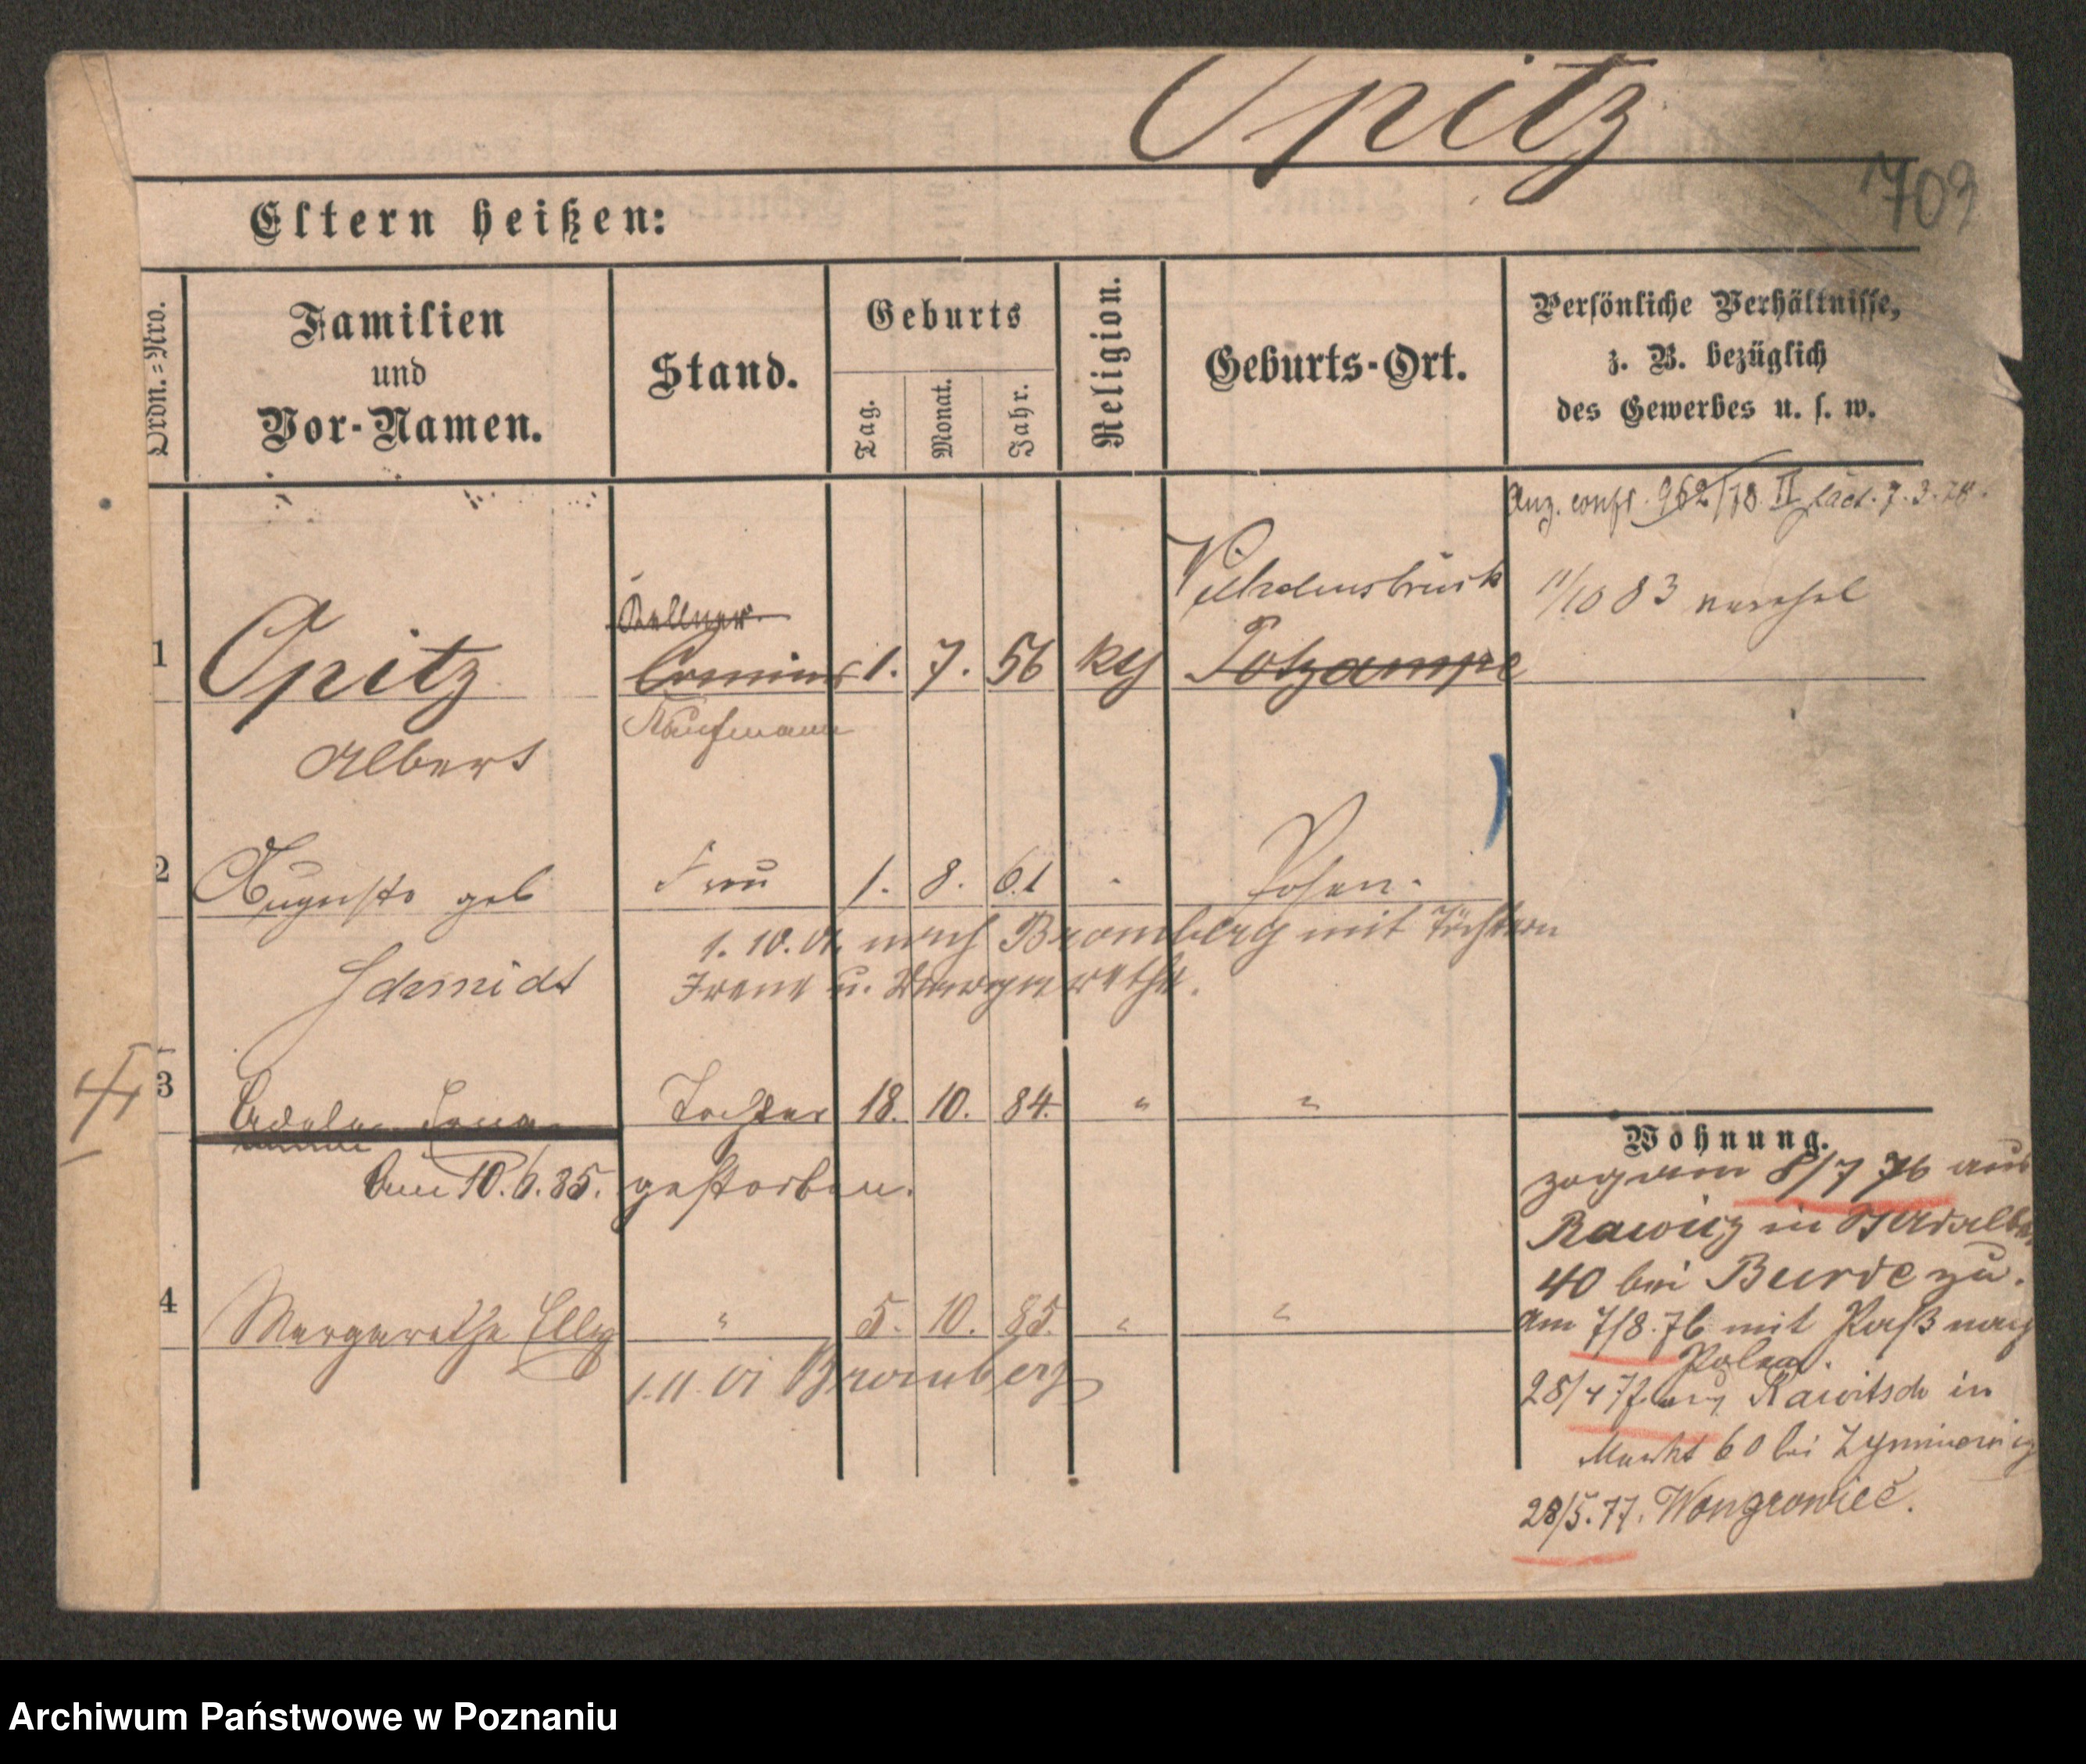 Opitz
703
Eltern heißen:
Ordn.=Nro.
Familien
und
Vor-Namen.
Stand.
Geburts
Tag.
Monat.
Jahr.
Religion.
Geburts-Ort.
Persönliche Verhältnisse,
z. B. bezüglich
des Gewerbes u. s. w.
962/78 II 7.3.78.
1
Opitz
Albert
Kellner
Commis
Kaufmann
1. 7. 56
kth
Wilhelmsbrück
11/10 83
2
Auguste geb
Schmidt
Frau
1. 8. 61
Posen.
1. 10. 01. nach Bromberg mit Töchtern
Irene u. Margarethe.
3
Tochter 18. 10. 84. " "
Am 10. 6. 85. gestorben.
4
Margarethe Elly " 5. 10. 85. " "
1. 11. 01 Bromberg
Wohnung.
zog am 8/7 76 aus
Rawicz in
40 bei Burde zu.
Am 7/8. 76 mit Paß nach
Polen.
28/4 77 aus Rawitsch in
Markt 60 bei
28/5. 77. Wongrowiec.
Archiwum Państwowe w Poznaniu